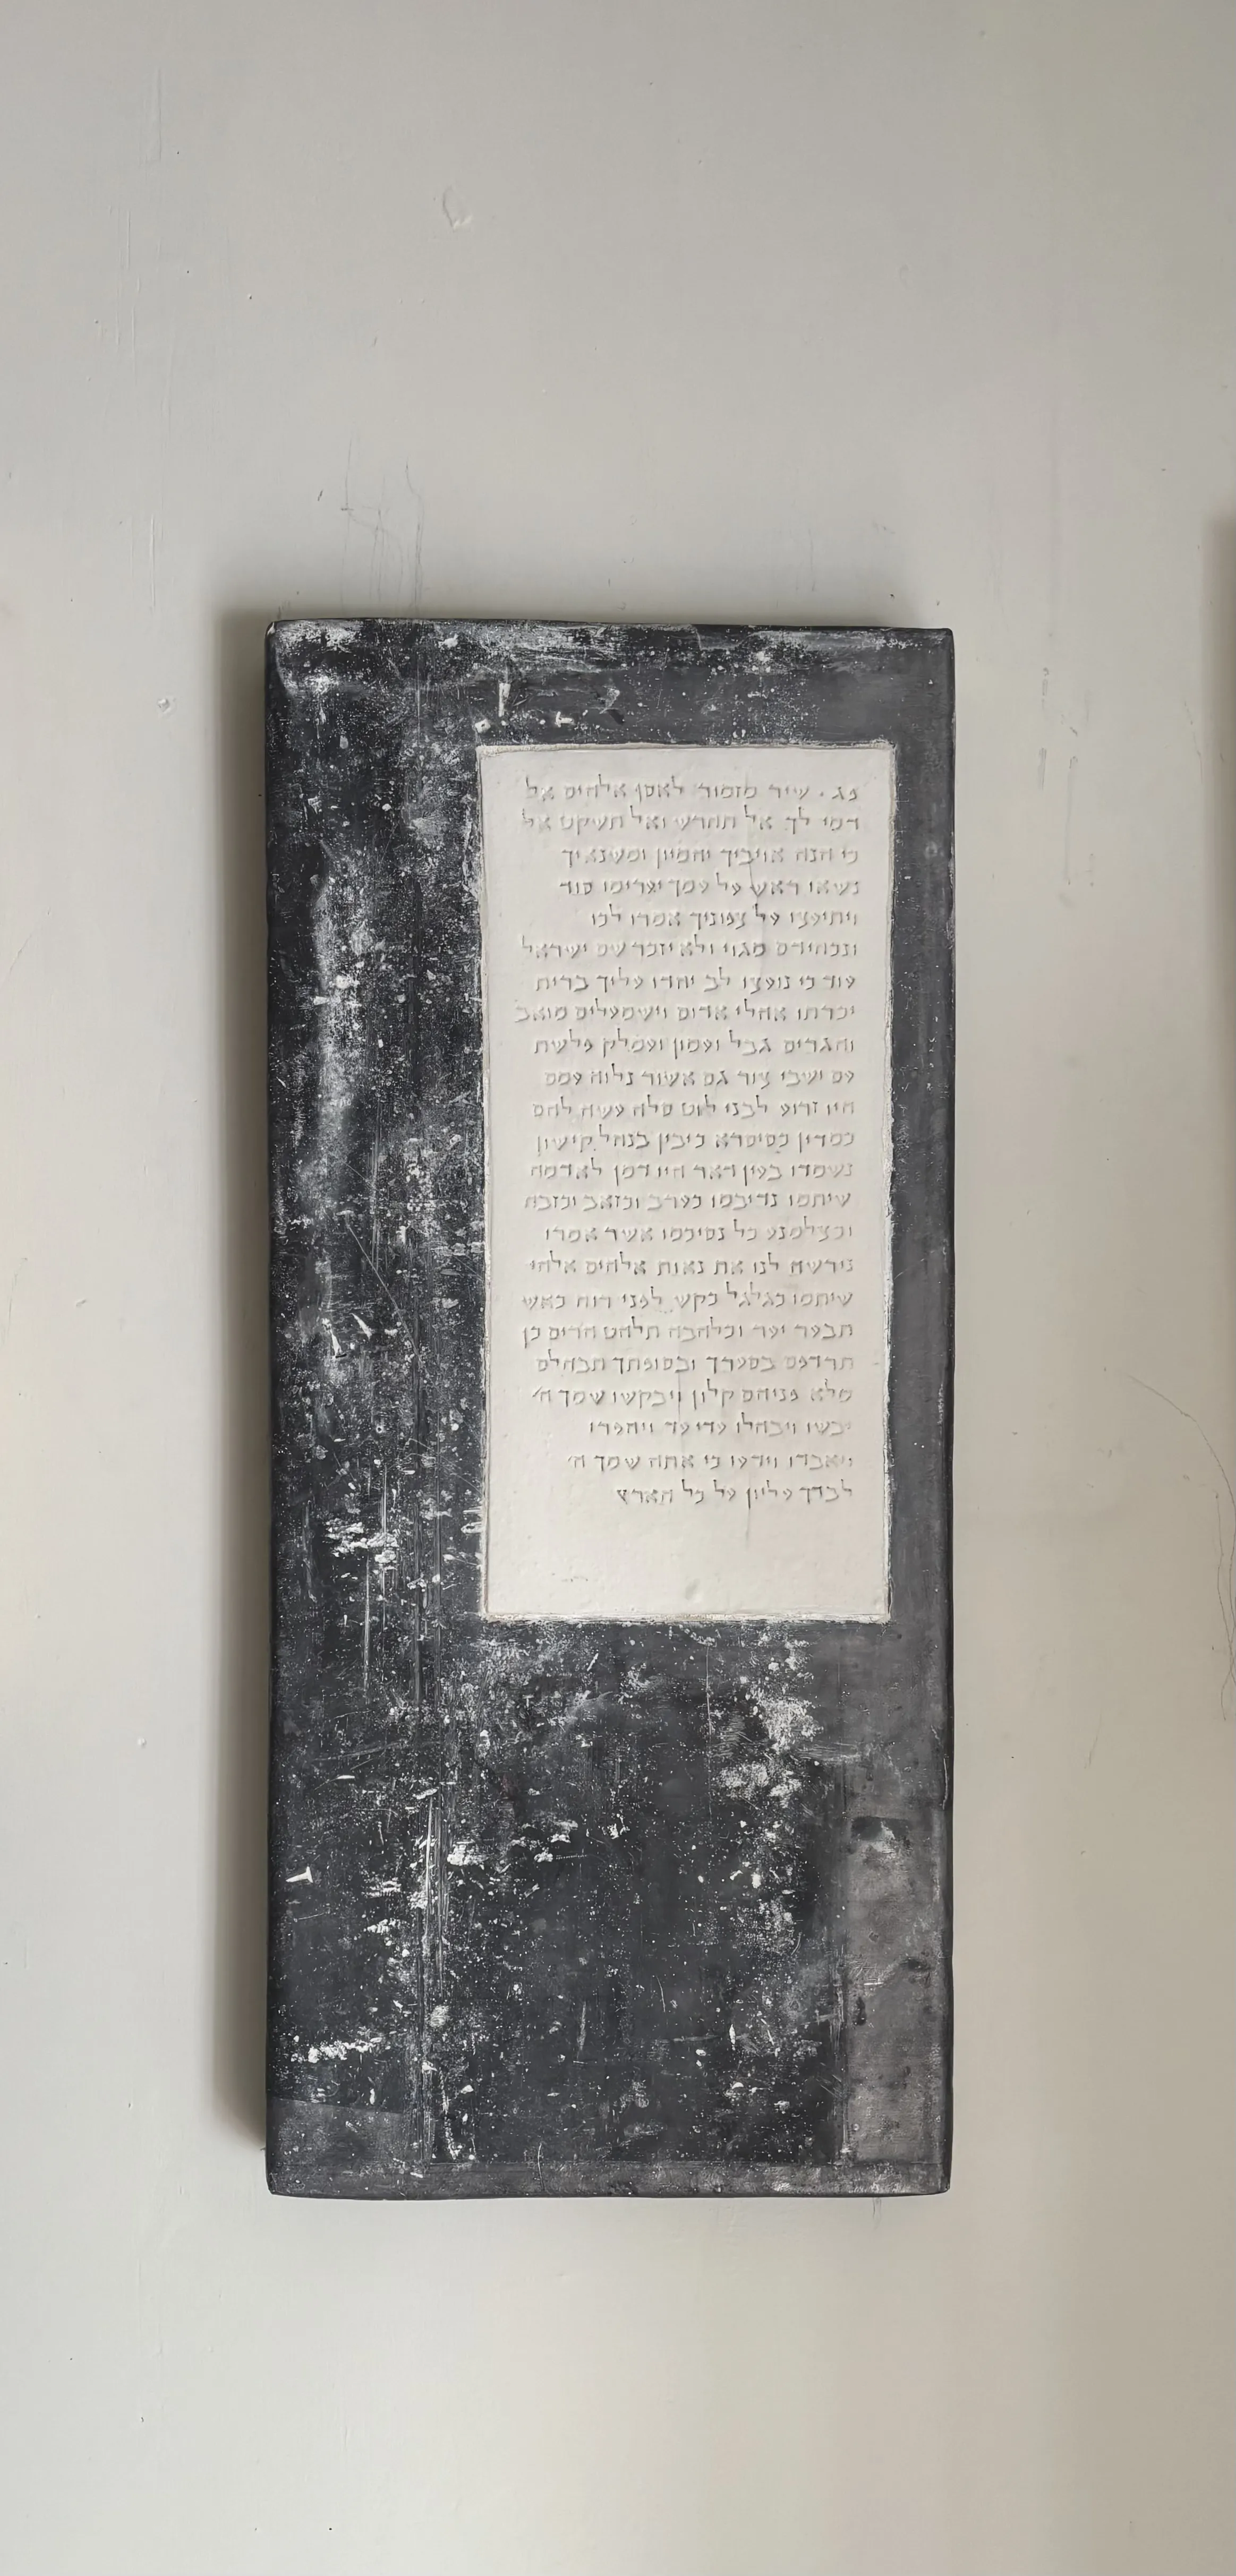 פג. שיר מזמור לאסף אלהים אל
דמי לך אל תחרש ואל תשקט אל
כי הנה אויביך יהמיון ומשנאיך
נשאו ראש על עמך יערימו סוד
ויתיעצו על צפוניך אמרו לכו
ונכחידם מגוי ולא יזכר שם ישראל
עוד כי נועצו לב יחדו עליך ברית
יכרתו אהלי אדום וישמעלים מואב
והגרים גבל ועמון ועמלק פלשת
עם ישבי צור גם אשור נלוה עמם
היו זרוע לבני לוט סלה עשה להם
כמדין כסיסרא כיבין בנחל קישון
נשמדו בעין דאר היו דמן לאדמה
שיתמו נדיבמו כערב וכזאב וכזבח
וכצלמנע כל נסיכמו אשר אמרו
נירשה לנו את נאות אלהים אלהי
שיתמו כגלגל כקש לפני רוח כאש
תבער יער וכלהבה תלהט הרים כן
תרדפם בסערך ובסופתך תבהלם
מלא פניהם קלון ויבקשו שמך ה׳
יבשו ויבהלו עדי עד ויחפרו
ויאבדו וידעו כי אתה שמך ה׳
לבדך עליון על כל הארץ